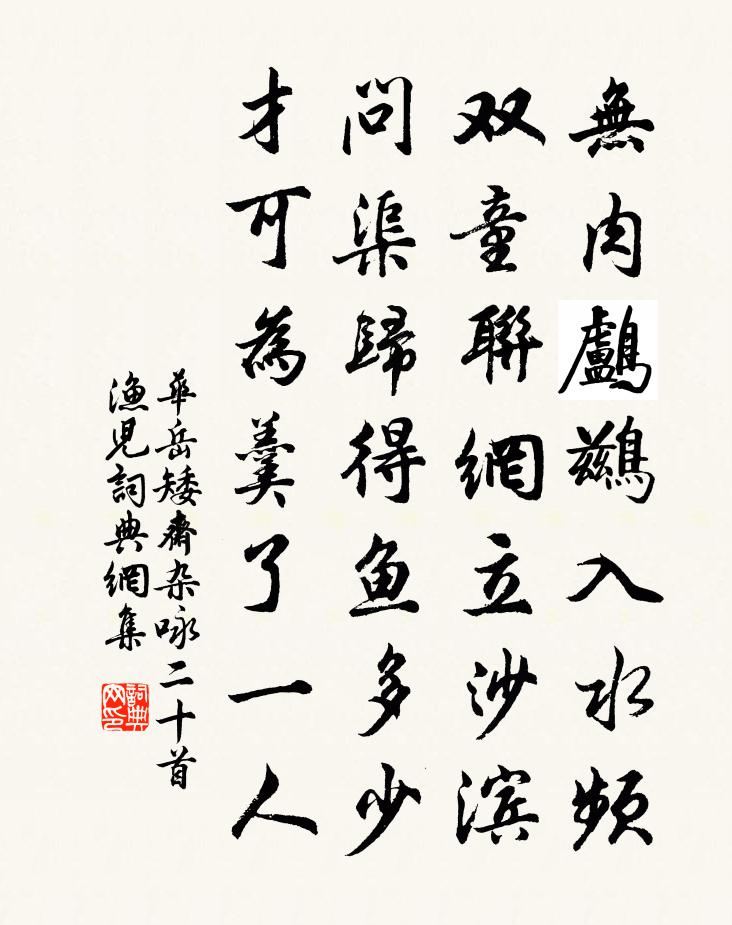 無肉鸕鷀入水頻
双童聯網立沙滨
問渠歸得鱼多少
才可為羹了一人
華岳矮齋杂咏二十首
渔児詞典網集
詞典网印